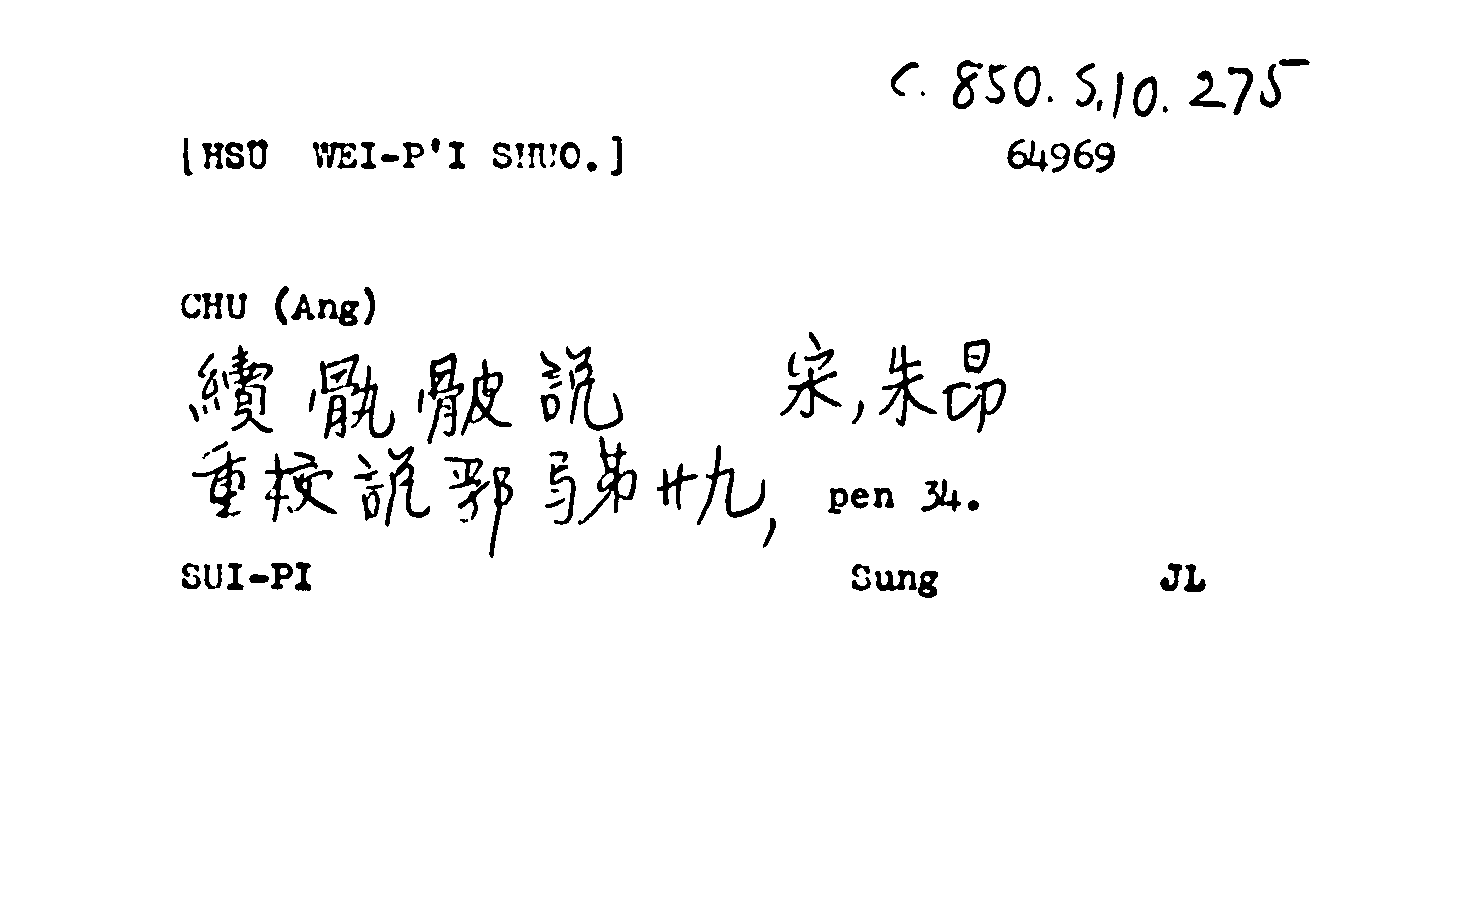 C. 850. S.10. 275
[HSÜ WEI-P'I SHUO.] 64969
CHU (Ang)
續骩骳說 宋,朱昂
重校說郛弓第廿九, pen 34.
SUI-PI Sung JL